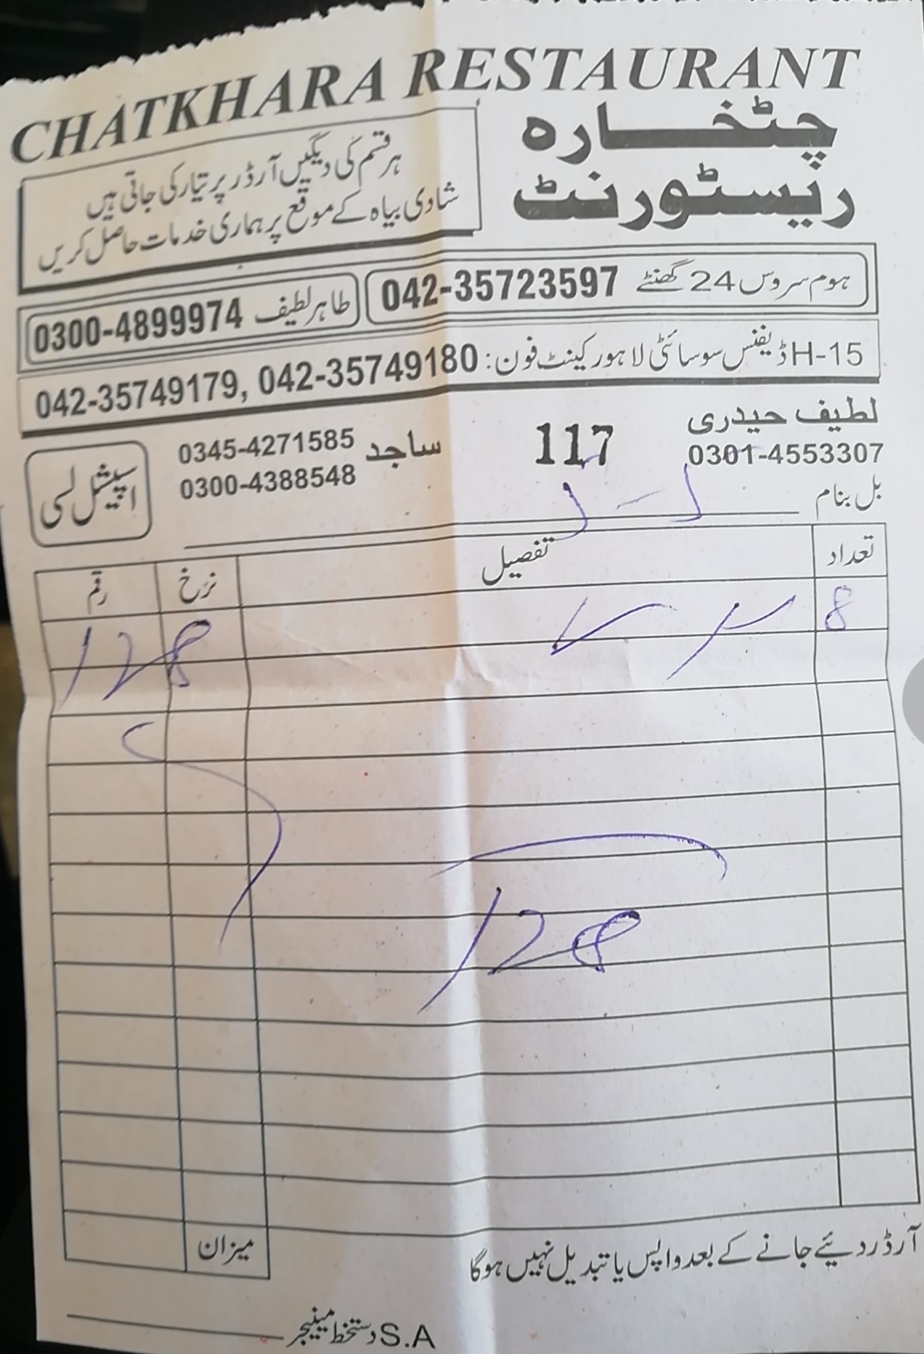 CHATKHARA RESTAURANT
چٹخارہ
ریسٹورنٹ
ہر قسم کی دیگیں آرڈر پر تیار کی جاتی ہیں
شادی بیاہ کے موقع پر ہماری خدمات حاصل کریں
ہوم سروس 24 گھنٹے 042-35723597
طاہر لطیف 0300-4899974
H-15 ڈیفنس سوسائٹی لاہور کینٹ فون: 042-35749179, 042-35749180
لطیف حیدری
0301-4553307
117
ساجد 0345-4271585
0300-4388548
اسپیشل لسی
بل بنام
تعداد تفصیل نرخ رقم
8 128
128
میزان
آرڈر دیئے جانے کے بعد واپس یا تبدیل نہیں ہوگا
S.A دستخط مینیجر